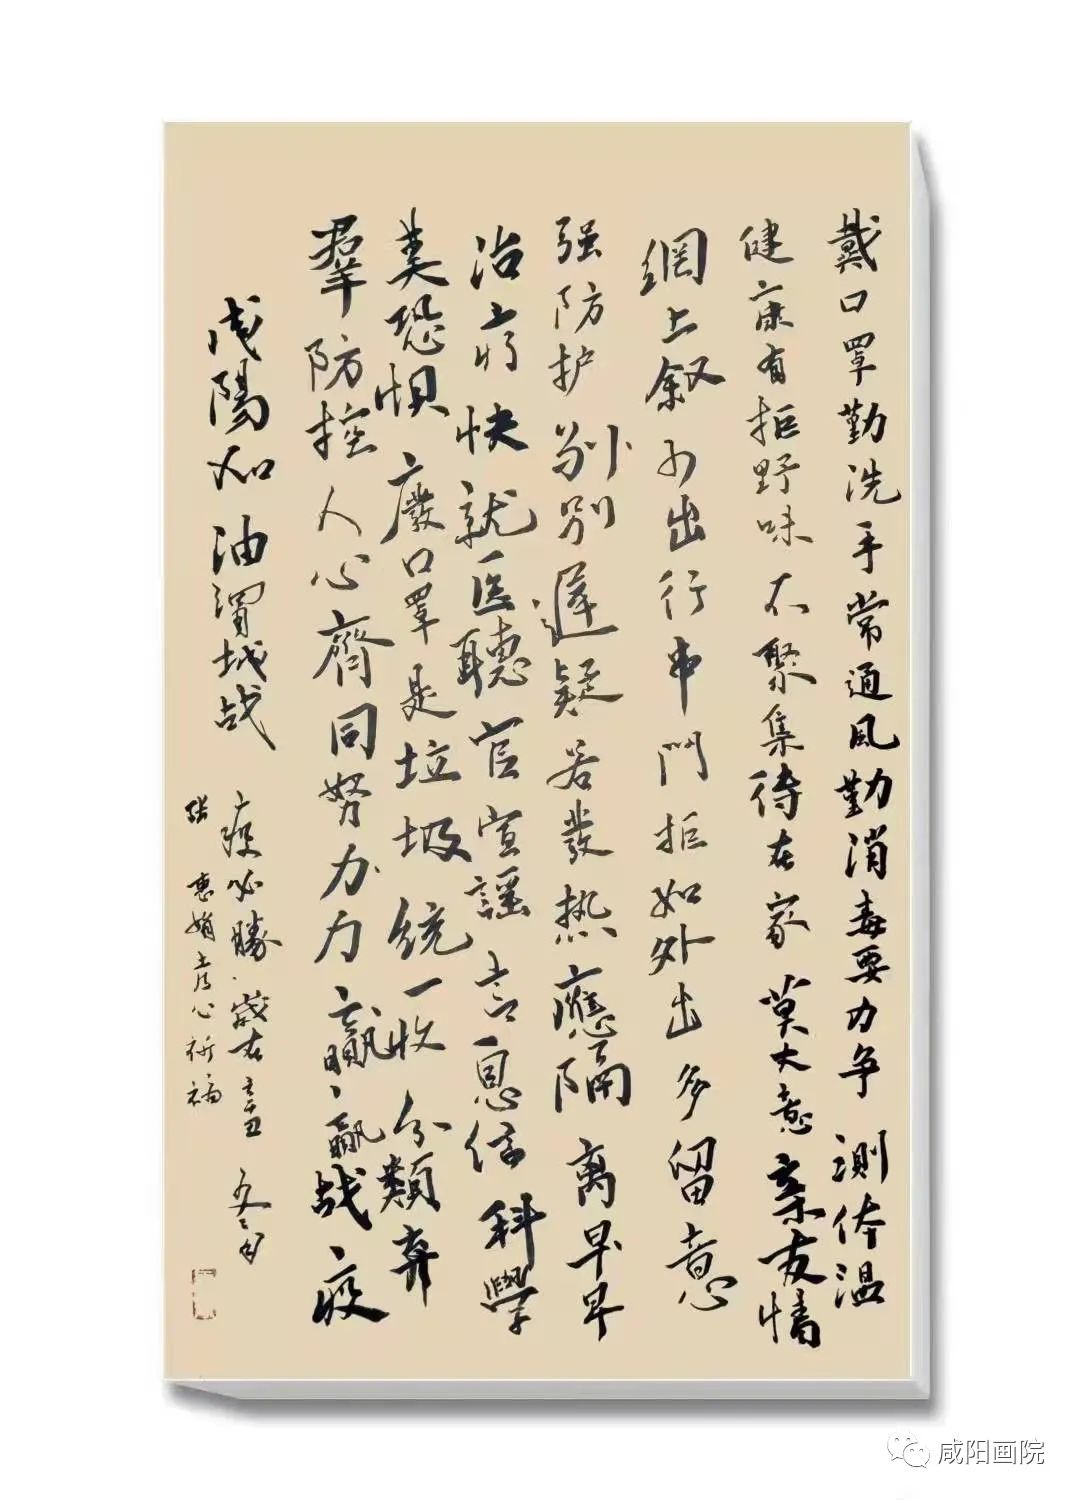 戴口罩勤洗手常通風勤消毒要力争測体温
健康有拒野味不聚集待在家莫大意亲友情
網上叙少出行串門拒如外出多留意
强防护别别遲疑若發热應隔离早早
治疗快就医聽官宣謡言息信科學
莫恐惧廢口罩是垃圾统一收分類弃
羣防控人心齊同努力力赢赢战疫
咸陽加油渭城战疫必勝歲在辛丑冬月
张惠娟虔心祈福
咸阳画院